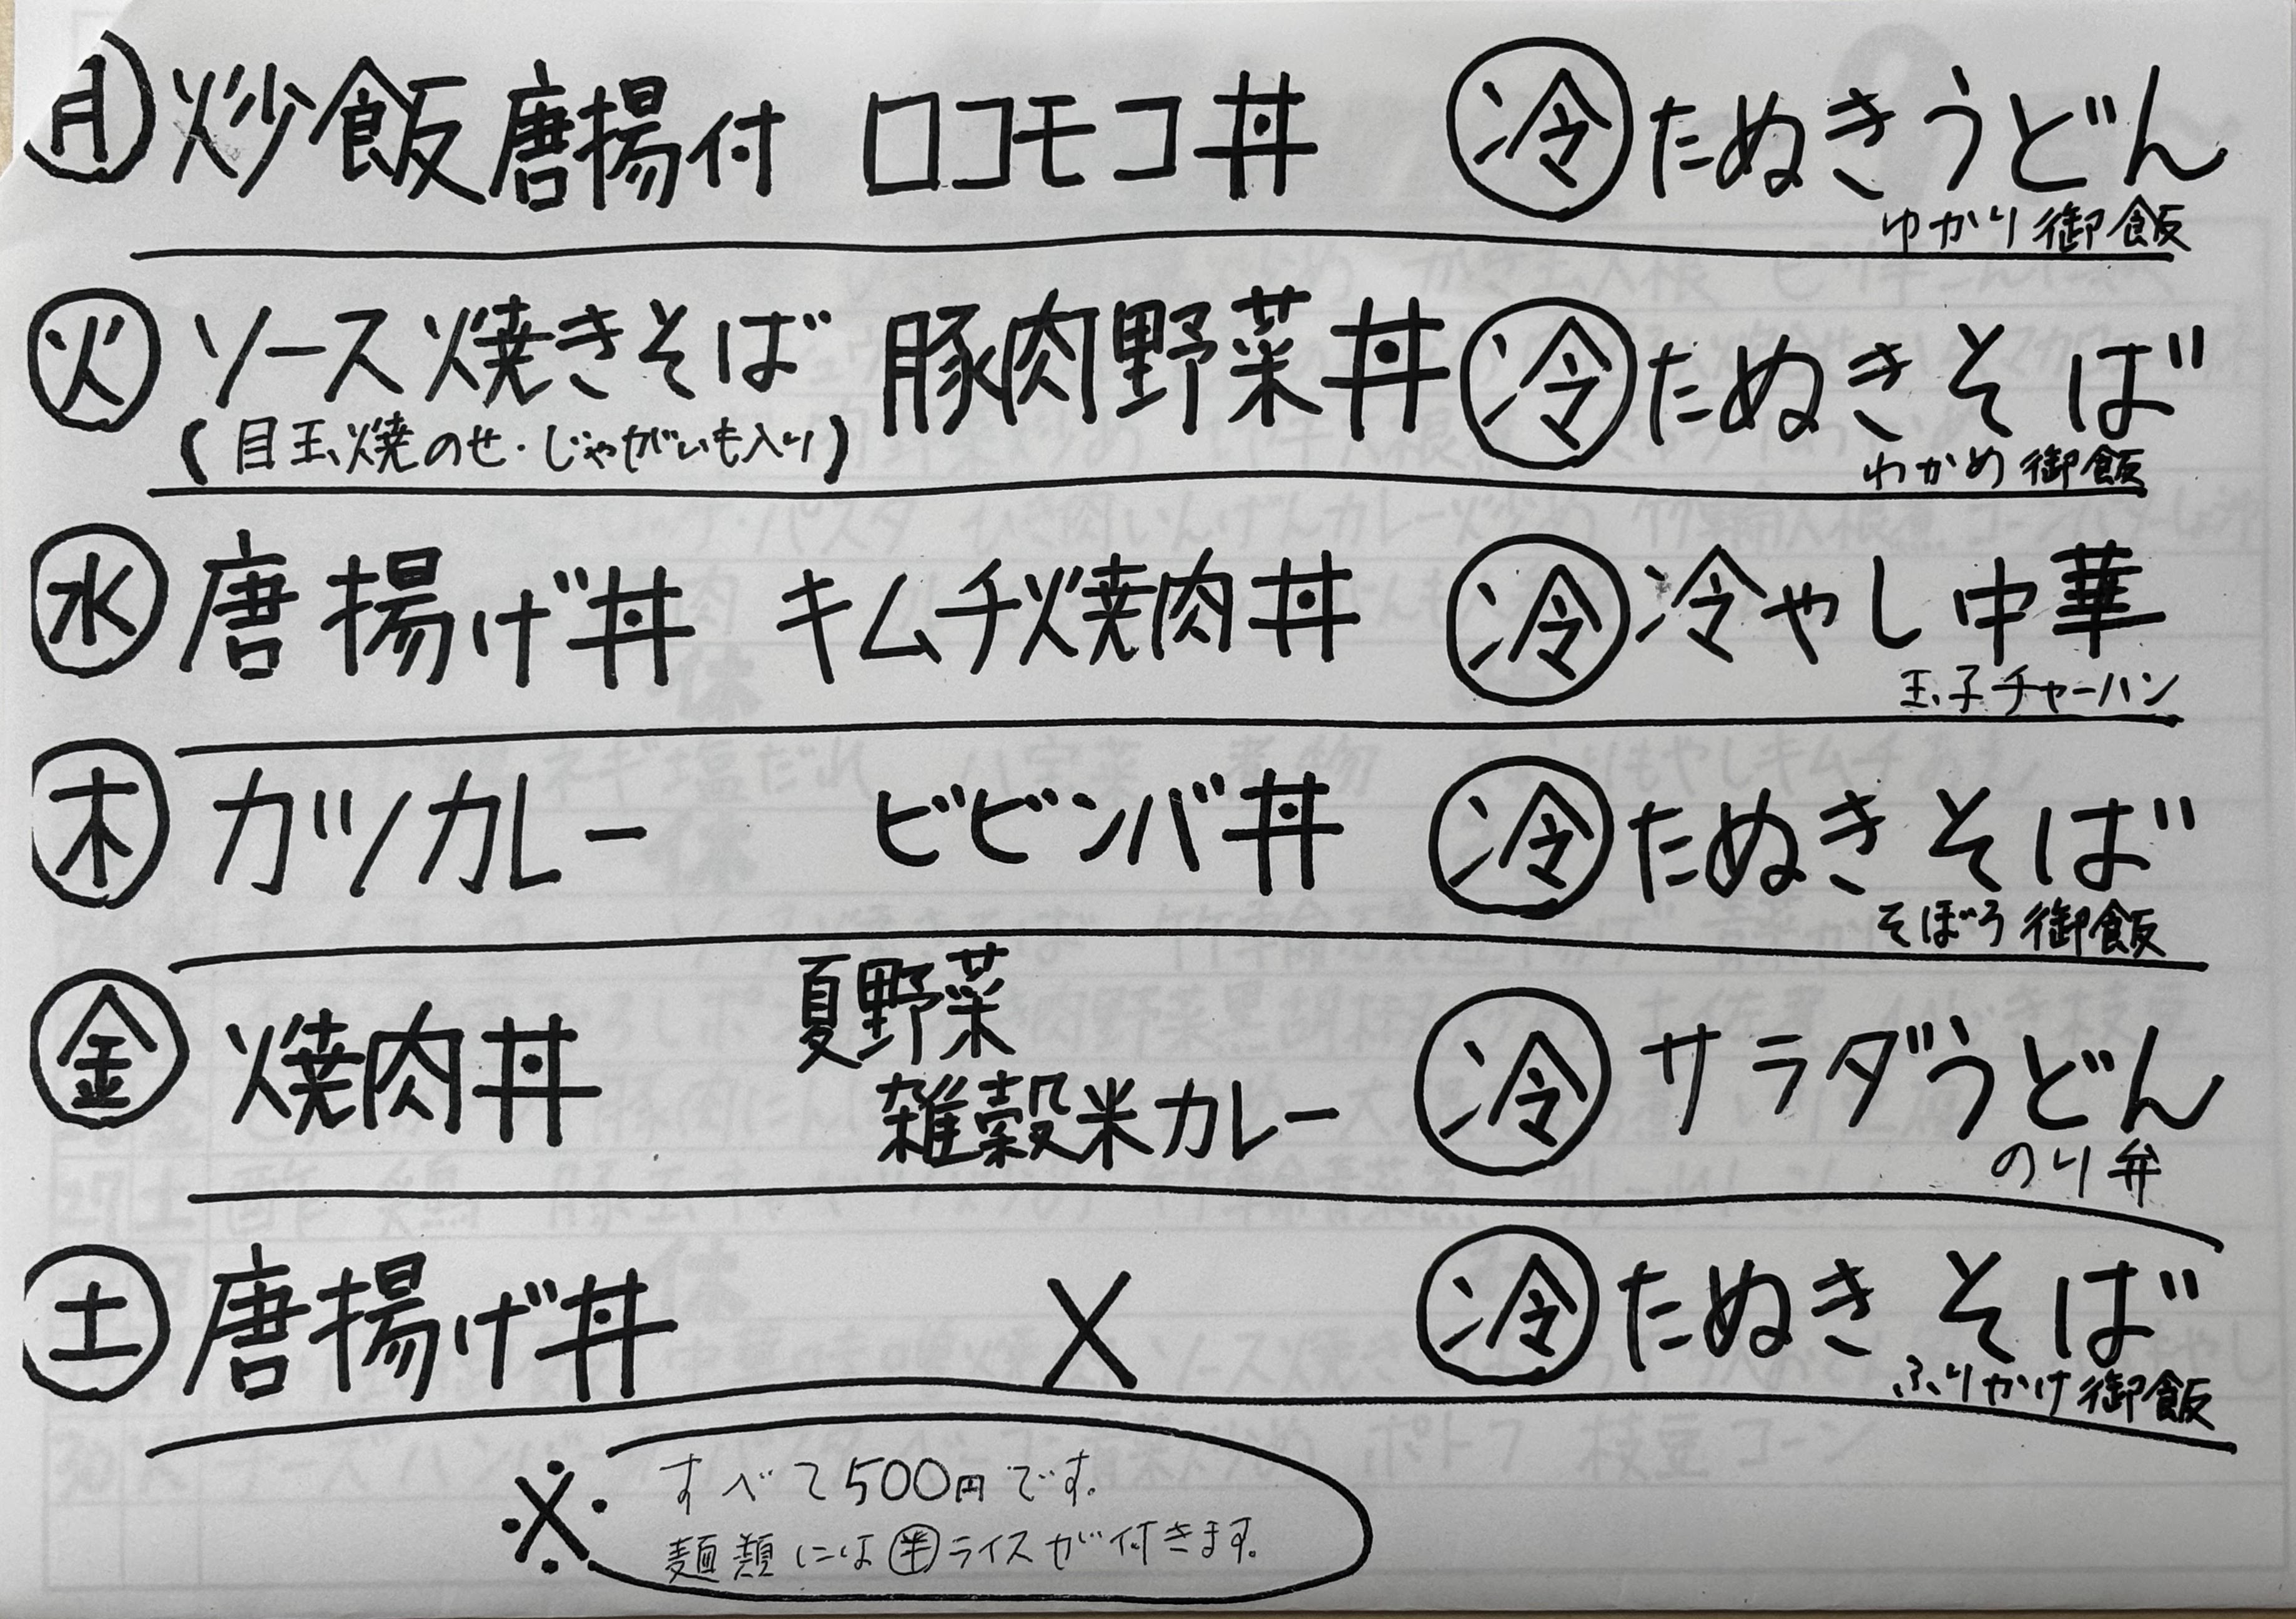 月 炒飯唐揚付 ロコモコ丼 冷 たぬきうどん
ゆかり御飯
火 ソース焼きそば 豚肉野菜丼 冷 たぬきそば
(目玉焼のせ・じゃがいも入り)
わかめ御飯
水 唐揚げ丼 キムチ焼肉丼 冷 冷やし中華
玉子チャーハン
木 カツカレー ビビンバ丼 冷 たぬきそば
そぼろ御飯
金 焼肉丼 夏野菜 雑穀米カレー 冷 サラダうどん
のり弁
土 唐揚げ丼 X 冷 たぬきそば
ふりかけ御飯
※ すべて500円です。
麺類には半ライスが付きます。